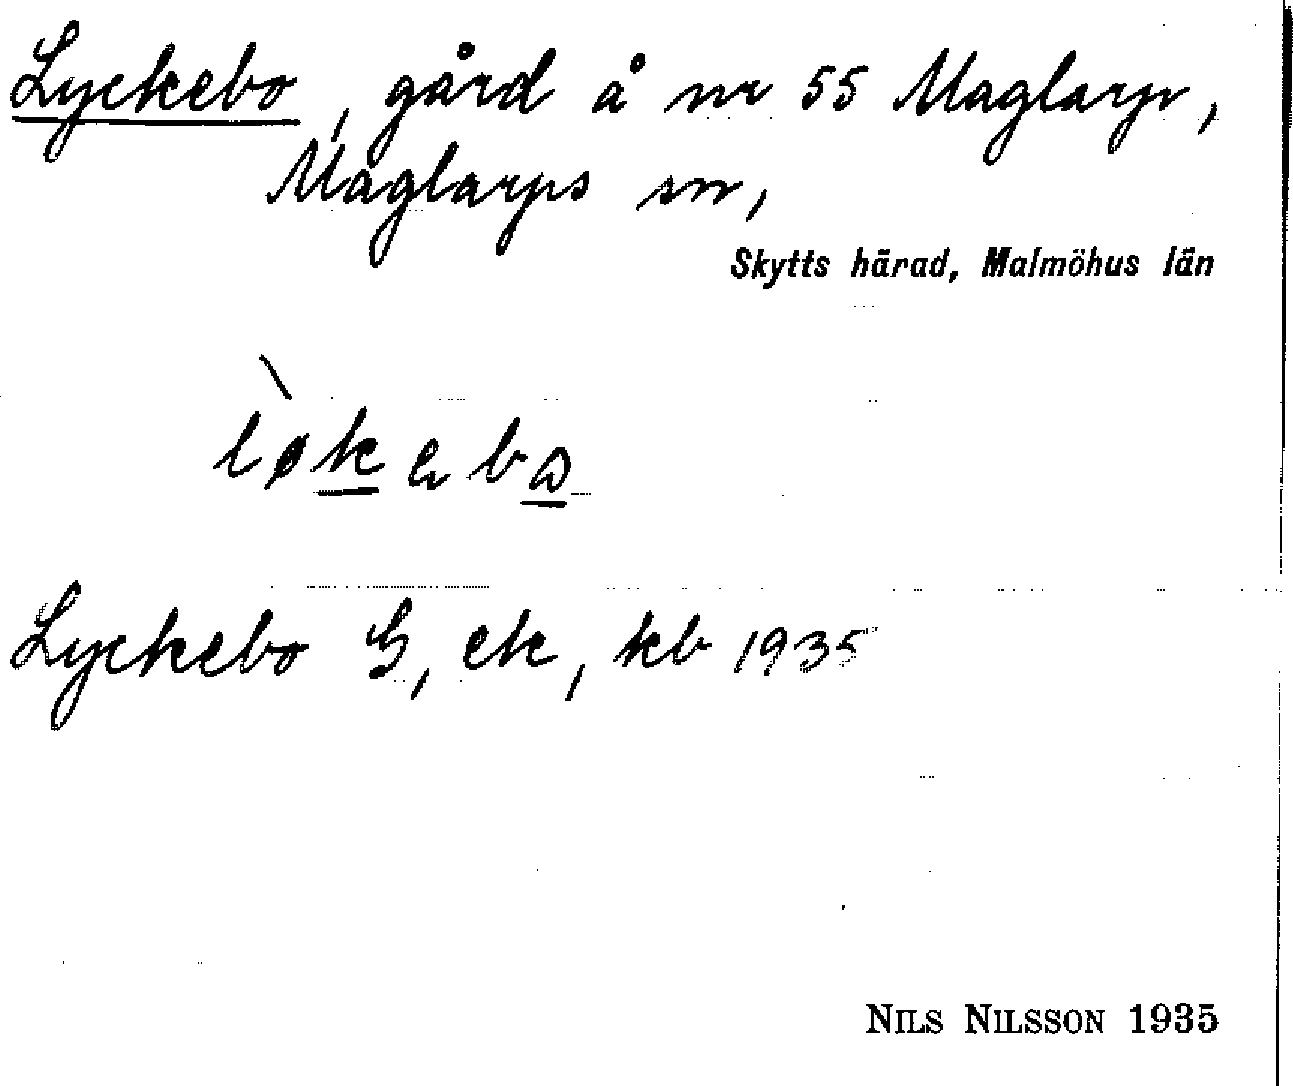 Lyckebo, gård å nr 55 Maglarp,
Maglarps sn,
Skytts härad, Malmöhus län
Lyckebo G, ek, kb 1935
NILS NILSSON 1935